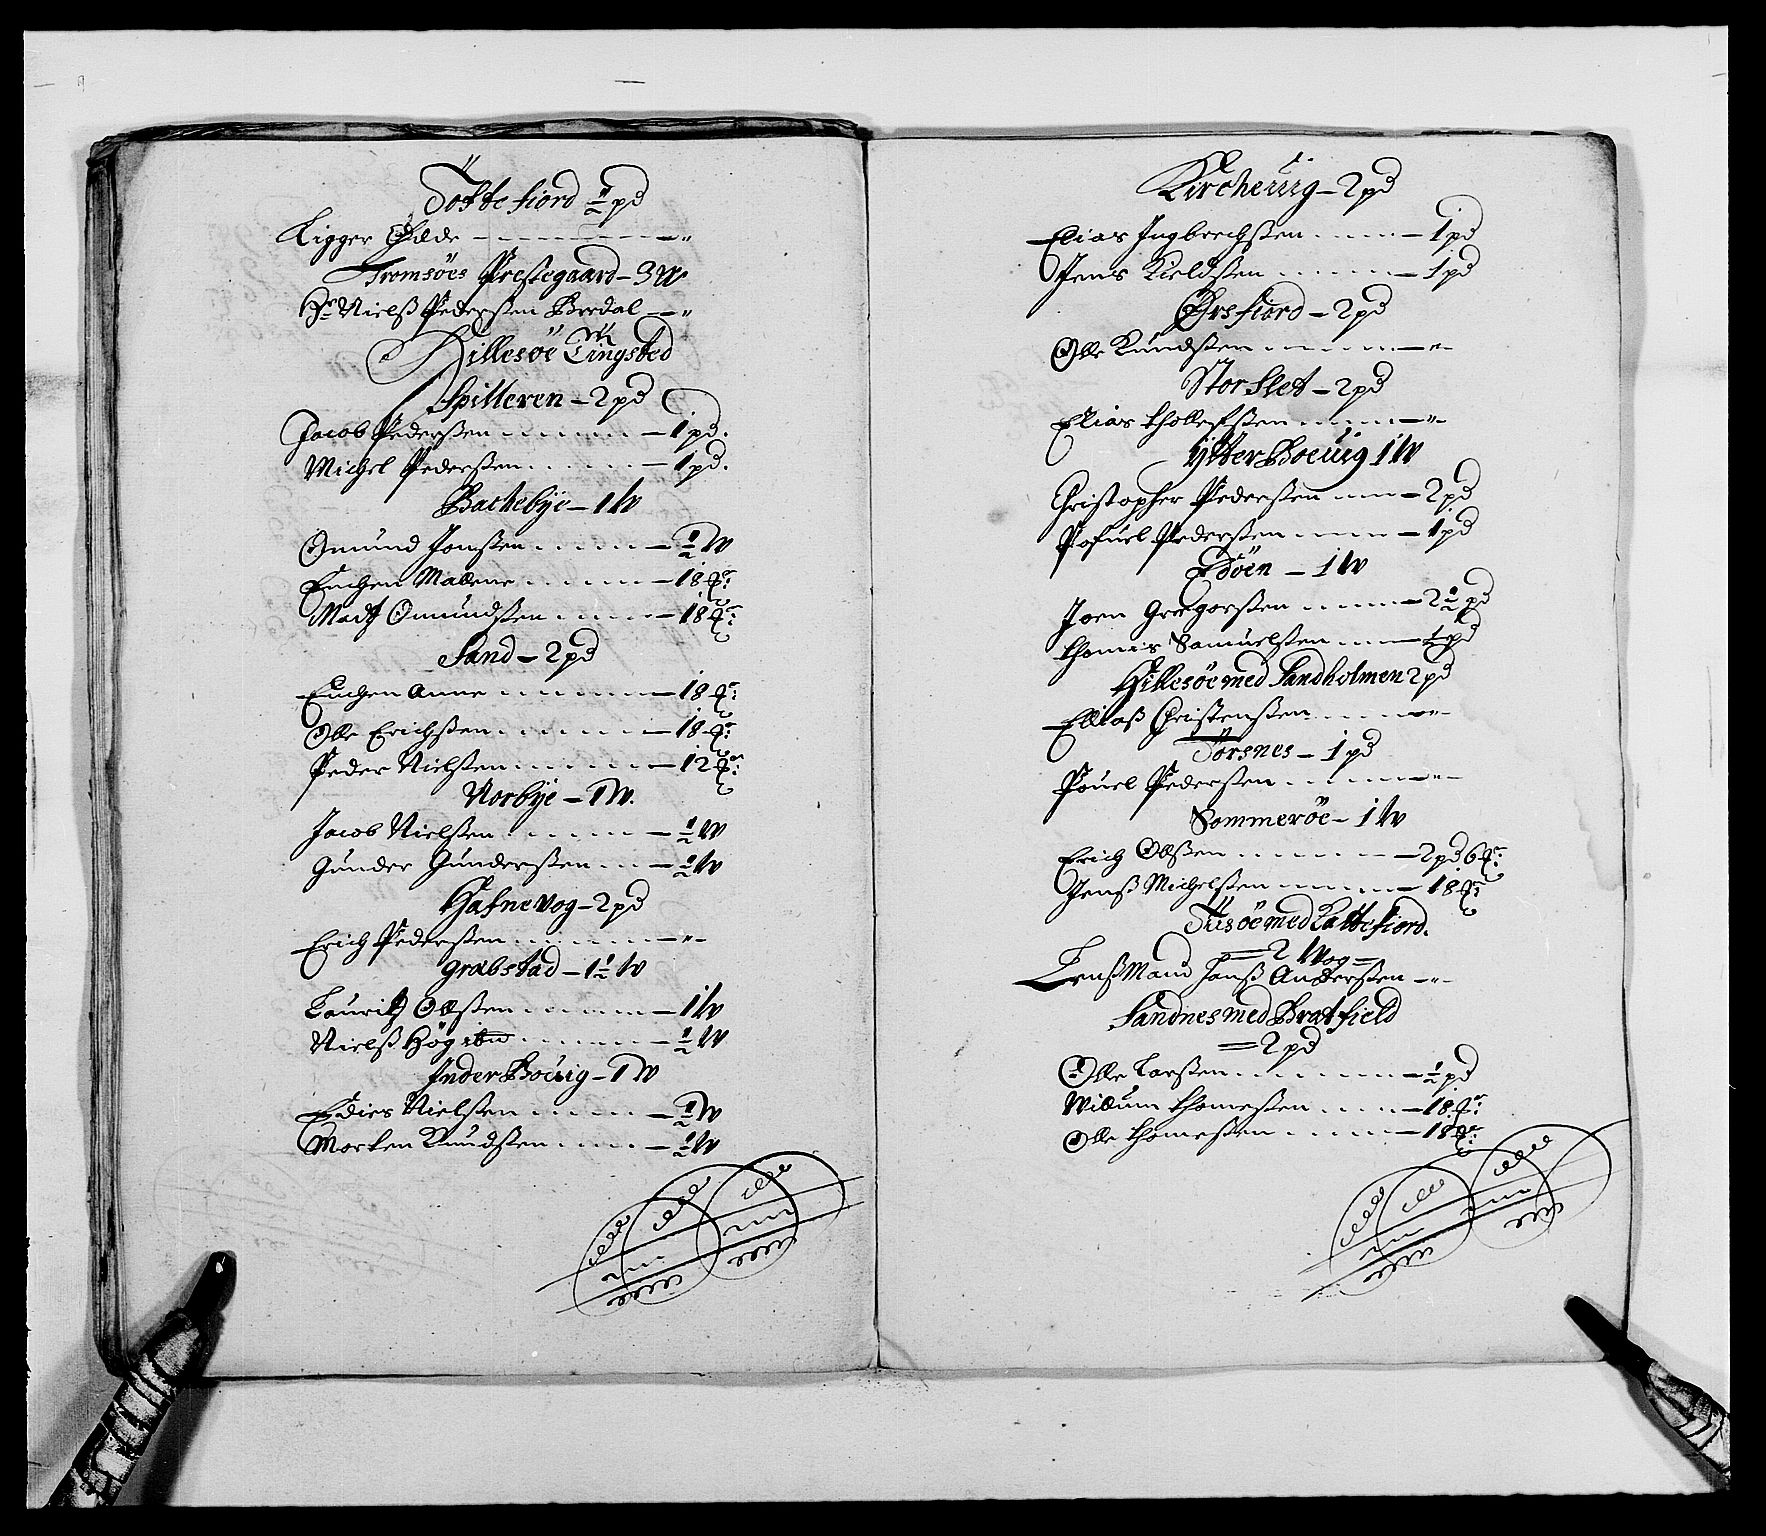 Töttefiord ½ pd
Ligger Øde - - - - - - - "
Tromsöes Prestegaard - 3 W
Hr Nielß Pederßen Berdal - "
Hillesöe Tingsted
Spilleren - 2 pd
Jacob Pederßen - - - - - 1 pd.
Michel Pederßen - - - - - 1 pd.
Bachebÿe - 1 W
Omund Jonßen - - - - - ½ W
Enchen Malene - - - - - 18 
Madtz Omundßen - - - - - 18 
Sand - 2 pd
Enchen Anne - - - - - 18 
Olle Erichßen - - - - - 18 
Peder Nielßen - - - - - 12 
Norbÿe - 1 W.
Jacob Nielßen - - - - - ½ W
Gunder Gunderßen - - - ½ W
Hafnevog - 2 pd
Erich Pederßen - - - - - "
grabstad - 1½ W
Lauritz Olßen - - - - - 1 W
Nielß Hög - - - - - ½ W
Inder Boeuig - 1 W
Edies Nielßen - - - - - ½ W
Morten Knudßen - - - - - ½ W
Kircheuig - 2 pd
Elias Ingbrechßen - - - - - 1 pd
Jens Kieldßen - - - - - 1 pd
Ørsfiord - 2 pd
Olle Knudßen - - - - - "
Storslet - 2 pd
Elias tholleфßen - - - - - "
Ytter Boeuig 1 W
Christopher Pederßen - - - 2 pd
Pofuel Pederßen - - - - 1 pd
Edöen - 1 W
Joen Gregorßen - - - - 2½ pd
thomis Samuelßen - - - ½ pd
Hillesöe med Sandholmen 2 pd
Elliaß Christenßen - - - - "
Torsnes - 1 pd
Pouel Pederßen - - - - - "
Sommeröe - 1 W
Erich Olßen - - - - - 2 pd 6 
Jenß Michelßen - - - - - 18 
Tusöe med Kattefiord.
= 2 Wog =
Lenßmand Hanß Anderßen - "
Sandnes med Bratfield
= 2 pd
Olle Larßen - - - - - ½ pd
Willum thomeßen - - - - 18 
Olle thomeßen - - - - - 18